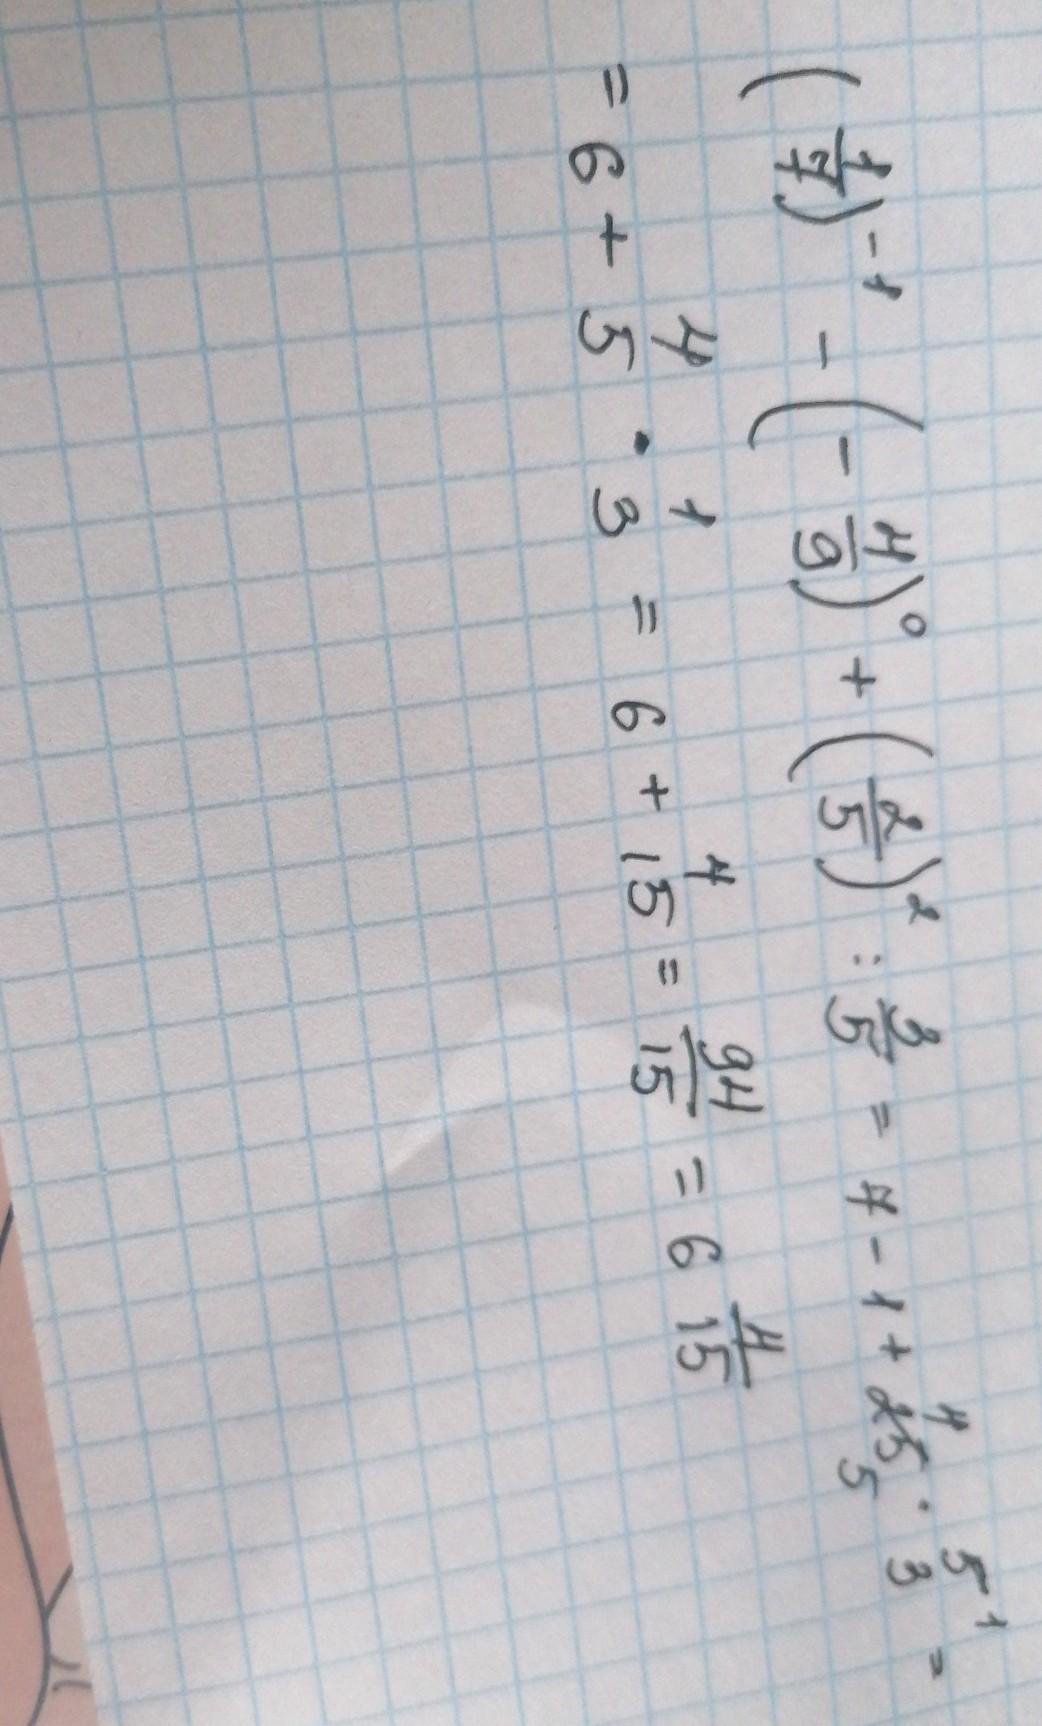 (1/7)^-1 - (-4/9)^0 + (2/5)^2 : 3/5 = 7 - 1 + 4/25 5 · 5/3 1 =
= 6 + 4/5 · 1/3 = 6 + 4/15 = 94/15 = 6 4/15